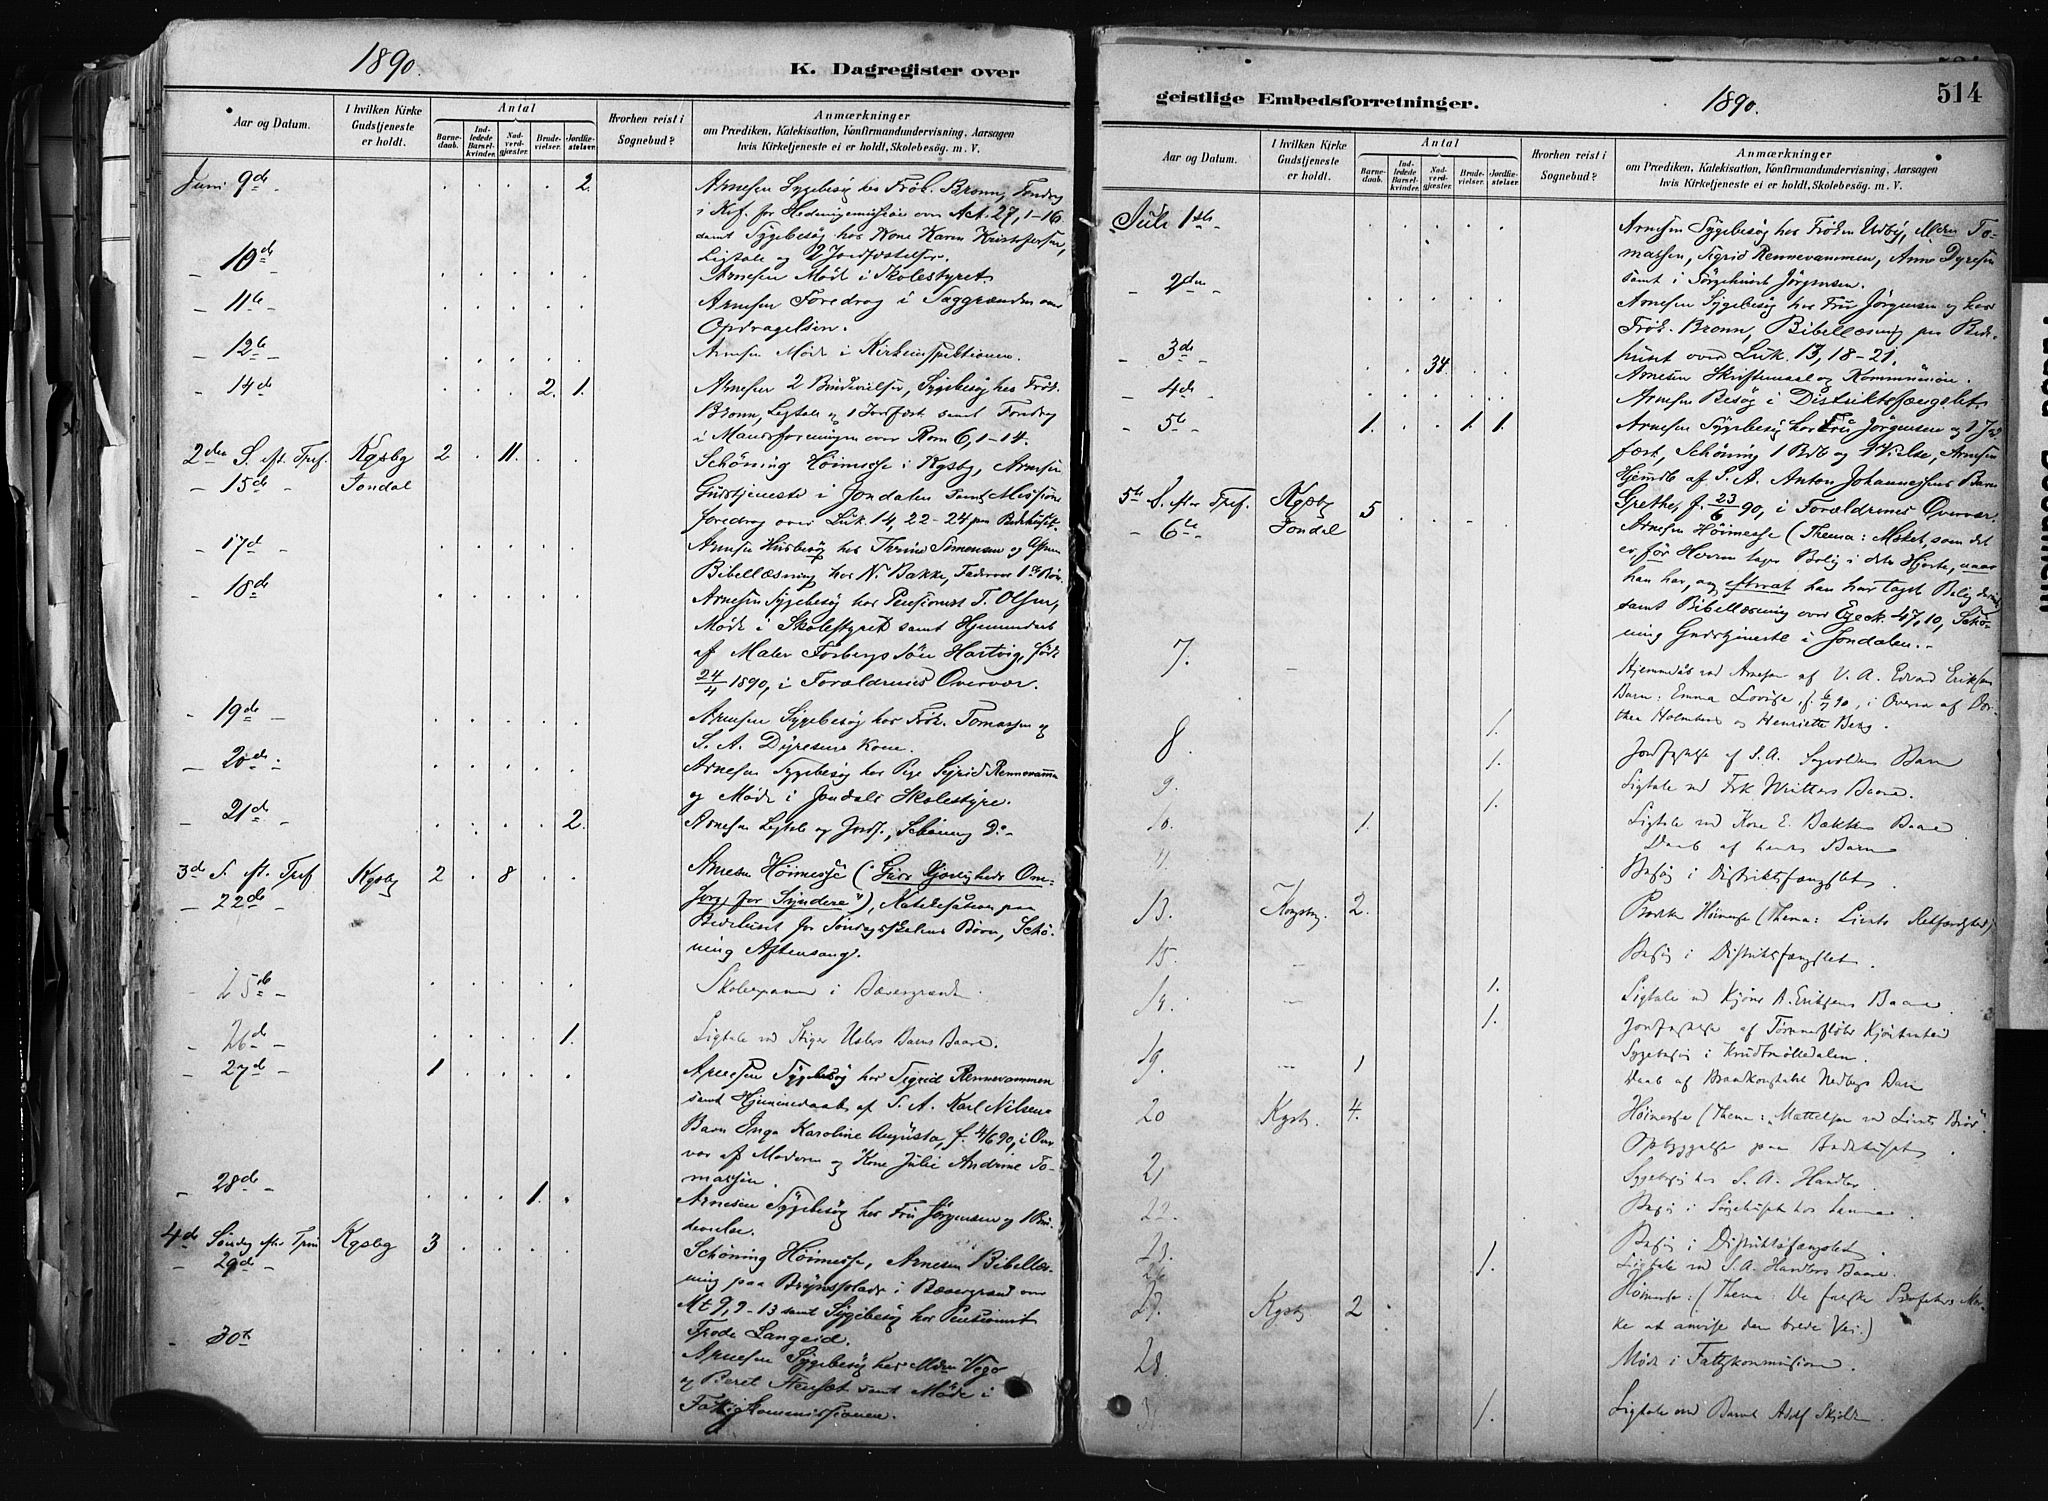 1890.
K. Dagregister over
Aar og Datum.
I hvilken Kirke Gudstjeneste er holdt.
Antal
Barne-daab.
Ind-ledede Barsel-kvinder.
Nad-verd-gjæster.
Brude-vielser.
Jordfæ-stelser.
Hvorhen reist i Sognebud?
Anmærkninger
om Prædiken, Katekisation, Konfirmandundervisning, Aarsagen
hvis Kirketjeneste ei er holdt, Skolebesøg. m. V.
Juni 9de 2. Arnesen Sygebesøg hos Frøk. Bronn, Foredrag
i Krf. for Hedningemission over Act. 27, 1-16
samt Sygebesøg hos Kone Karen Kristoffersen,
Ligtale og 2 Jordfæstelser.
- 10de - Arnesen Møde i Skolestyret.
- 11te - Arnesen Foredrag i Saggrænden om
Opdragelsen.
- 12te - Arnesen Møde i Kirkeinspektionen.
- 14de 2. 1. Arnesen 2 Brudevielser, Sygebesøg hos Frøk.
Bronn, Ligtale og 1 Jordfæst. samt Foredrag
i Mandsforeningen over Rom 6, 1-14.
2den S. eft. Tref. Kgsbg 2 11. Schöning Høimesse i Kgsbg, Arnesen
- 15de - Jondal Gudstjeneste i Jondalen samt Missions
foredrag over Luk. 14, 22-24 paa Bedehuset.
- 17de - Arnesen Husbesøg hos Thrine Sørensen og
Bibellæsning hos N. Bakke,
- 18de Arnesen Sygebesøg hos Pensionist T. Olsen,
Møde i Skolestyret samt Hjemmedaab
af Maler Forbergs Søn Hartvig, født
24/4 1890, i Forældrenes Overvær.
- 19de - Arnesen Sygebesøg hos Frøk. Tomassen og
S. A. Dyresens Kone.
- 20de - Arnesen Sygebesøg hos Pige Sigrid Rennevammen
og Møde i Jondals Skolestyre.
- 21de - 2. Arnesen Ligtale og Jordf., Schöning Do -
3de S. eft. Tref. Kgsbg 2 8 Arnesen Høimesse ("Guds Kjærligheds Om-
- 22de - sorg for Syndere"), Katekisation paa
Bedehuset for Søndagsskolens Børn, Schö-
ning Aftensang.
- 25de - Skoleexamen i Bævergrænden.
- 26de 1. Ligtale ved Stiger Uslers Barns Baare.
- 27de 1. Arnesen Sygebesøg hos Sigrid Rennevammen
samt Hjemmedaab af S. A. Karl Nilsens
Barn Inga Karoline Augusta, f. 4/6 90, i Over
vær af Moderen og Kone Julie Andrine To-
massen.
- 28de - 1. Arnesen Sygebesøg hos Fru Jørgensen og 1 Bru-
devielse.
4de Søndag efter Trin Kgsbg 3 Schöning Høimesse, Arnesen Bibellæs-
- 29de - ning paa i Bævergrænd over
Mt 9, 9-13 samt Sygebesøg hos Pensionist
Frode Langeid.
- 30te Arnesen Sygebesøg hos Vego
og Beret samt Møde i
Fattigkommissionen.
geistlige Embedsforretninger.
1890.
514
Aar og Datum.
I hvilken Kirke Gudstjeneste er holdt.
Antal
Barne-daab.
Ind-ledede Barsel-kvinder.
Nad-verd-gjæster.
Brude-vielser.
Jordfæ-stelser.
Hvorhen reist i Sognebud?
Anmærkninger
om Prædiken, Katekisation, Konfirmandundervisning, Aarsagen
hvis Kirketjeneste ei er holdt, Skolebesøg. m. V.
Juli 1ste Arnesen Sygebesøg hos Frøken Udby, To-
massen, Sigrid Rennevammen, Anne Dyresen
samt i Sørgehuset Jørgensen.
- 2den - Arnesen Sygebesøg hos Fru Jørgensen og hos
Frøk. Bronn, Bibellæsning paa Bede-
huset over Luk. 13, 18-21.
- 3de - 34. Arnesen Skriftemaal og Kommunion.
- 4de - Arnesen Besøg i Distriktsfængslet.
- 5te - 1. 1. 1. Arnesen Sygebesøg hos Fru Jørgensen og 1 Jord
fæst, Schöning 1 Bdb og 1 Vielse, Arnesen
Hjemdb af S. A. Anton Johannesens Barn
Grethe, f. 23/6 90, i Forældrenes Overvær.
5te S. efter Tref. Kgsbg 5 Arnesen Høimesse (Thema: Mørket, som det
- 6te - Jondal er, før Herren tager Bolig i dets Hjerte, naar
han har, og efterat han har taget Bolig
samt Bibellæsning over Ezek. 47, 10, Schö-
ning Gudstjeneste i Jondalen.
7. - Hjemmedåb ved Arnesen af V. A. Edvard Eriksens
Barn: Emma Lovise, f. 90, i Overvær af Dor-
thea Holmboe og Henriette Berg.
8. 1. Jordfæstelse af S. A. Barn
9. 1. Ligtale ved Frk. Baare.
10. 1. 1. Ligtale ved Kone E. Bakkes Baare.
Daab af hendes Barn
11. Besøg i Distriktsfængslet.
13. Kongsbg. 2. Høimesse (Thema: Livets Retfærdighed)
15. - Besøg i Distriktsfængslet.
14. - 1. Ligtale ved A. Eriksens Baare.
1. Jordfæstelse af Tømmerfløder
19. - 1 Sygebesøg i Krudtmølledalen.
Daab af Brandkonstabel Nedbergs Barn
20 Kgsb. 4. Høimesse (Thema: Mættelsen ved Livets Brød".
Opbyggelse paa Bedehuset.
21 Sygebesøg hos S. A. Handler.
22. Besøg i Sørgehuset hos
23. Besøg i Distriktsfængslet.
26 1. Ligtale ved S. A. Handlers Baare.
27. Kgsb. 2 Høimesse: (Thema: De falske Profeters Mær-
ke at anvise den brede Vei.)
28. Møde i Fattigkommissionen.
31. 1. Ligtale ved Barnet Adolf